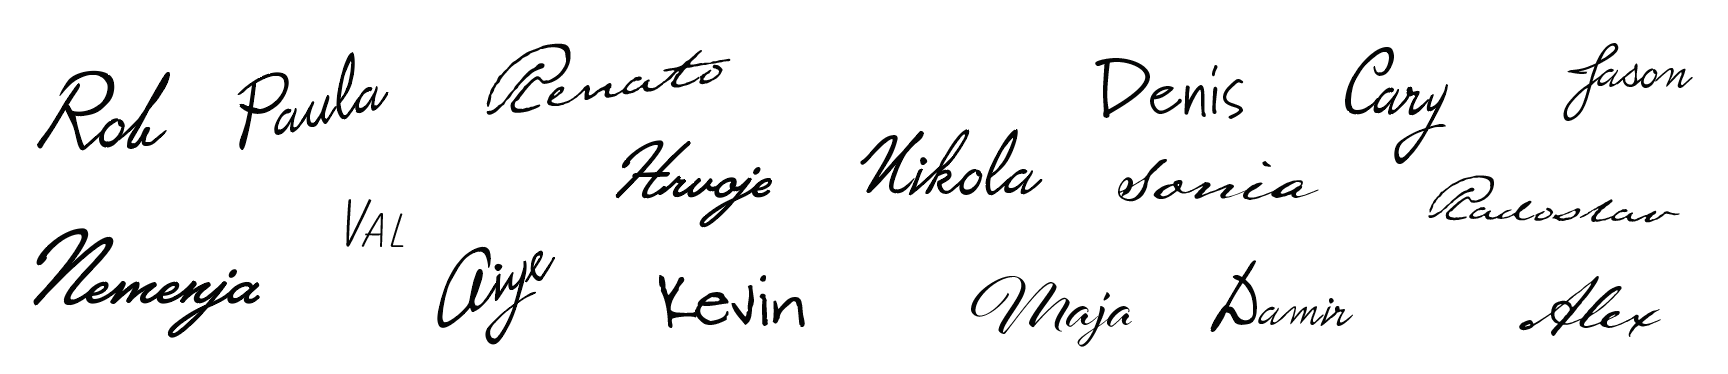 Rob Paula Renato Denis Cary Jason
Hrvoje Nikola Sonia Radoslav
Nemenja VAL Aiye Kevin Maja Damir Alex